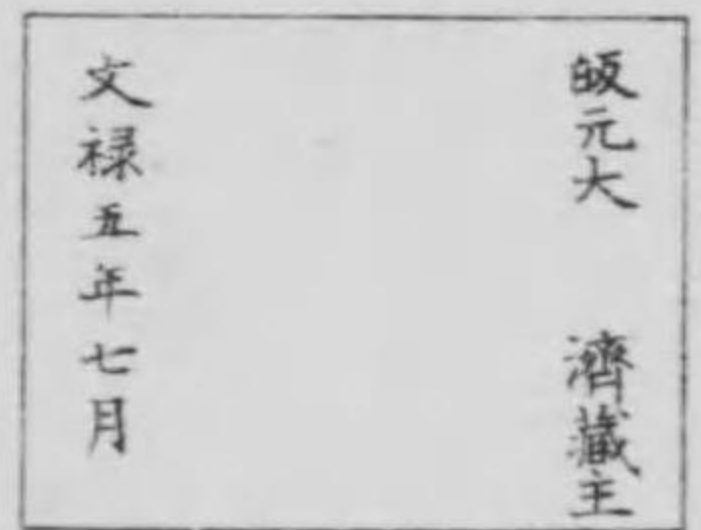 皈元大 濟藏主
文禄五年七月